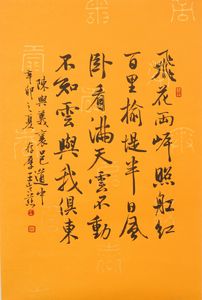 飛花兩岸照船紅
百里榆堤半日風
卧看滿天雲不動
不知雲與我俱東
陳與義襄邑道中
辛卯之夏